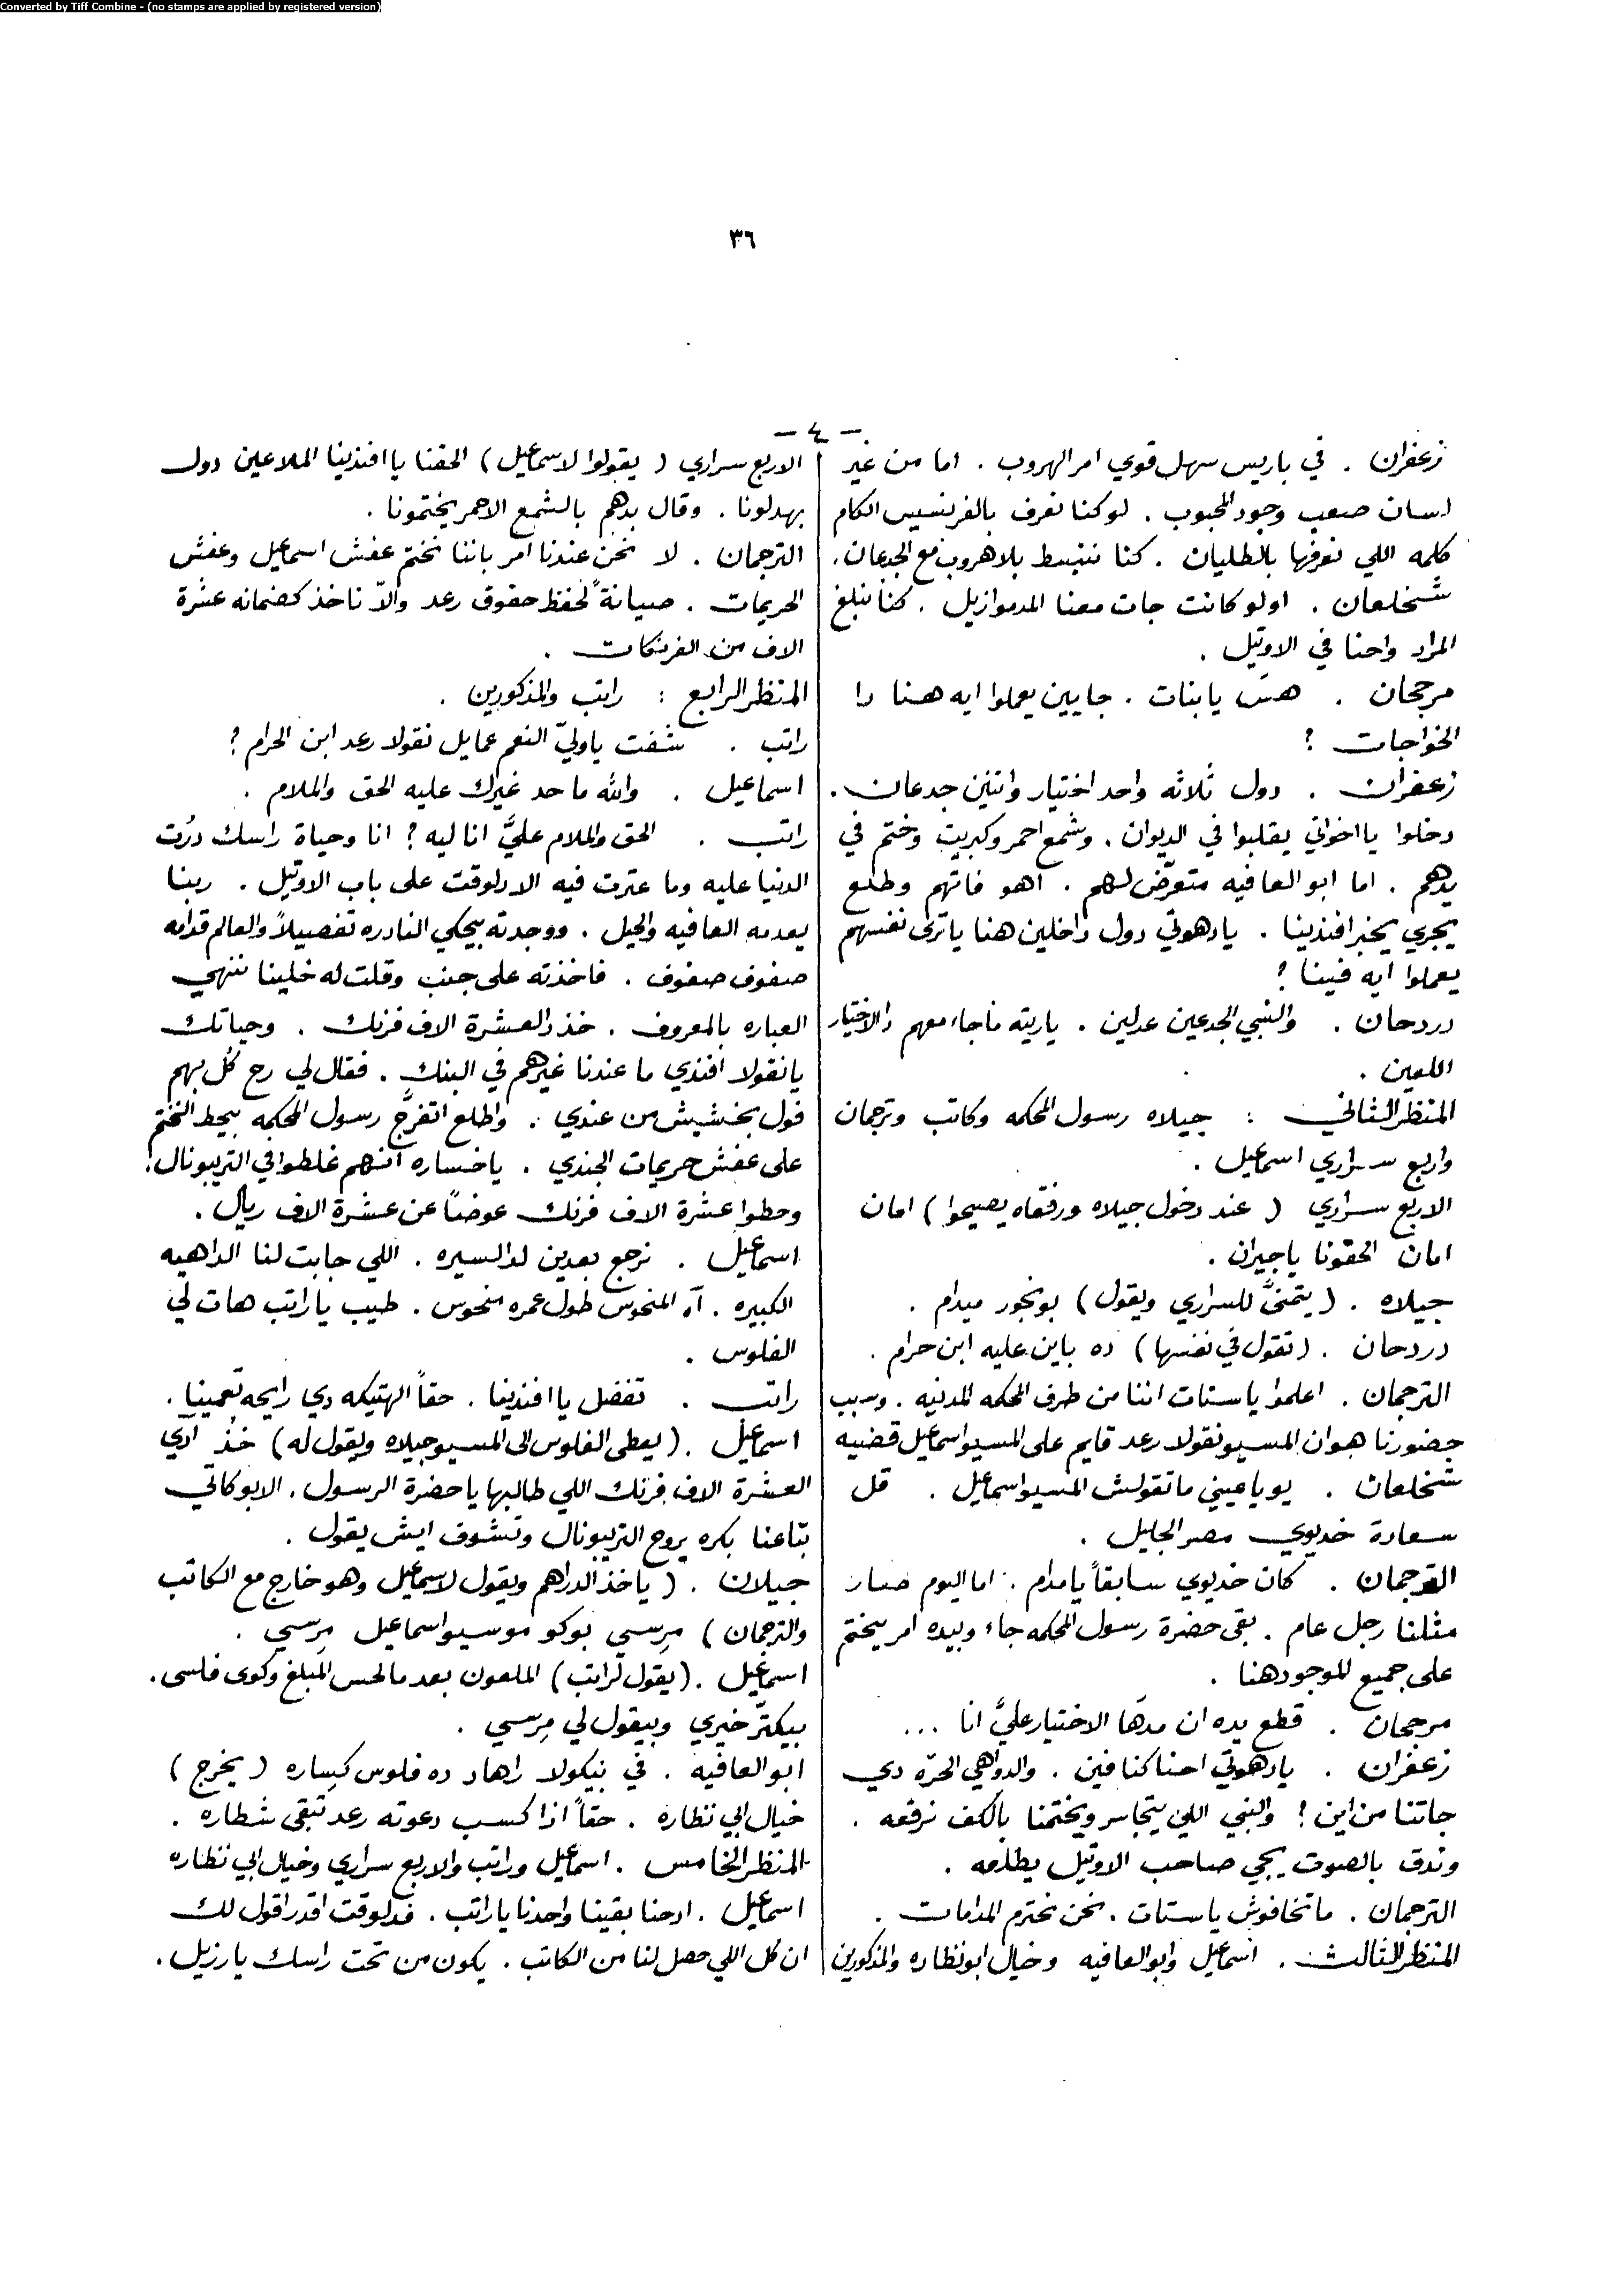 Converted by Tiff Combine - (no stamps are applied by registered version)
٣٦
- ٤ -
زعفران . في باريس سهل قوي امر الهروب . اما من غير
لسان صعب وجود المحبوب . لو كنا نعرف بالفرنسيس الكام
كلمه اللي نعرفها بالطليان . كنا ننبسط بلا هروب مع الجدعان .
شخلعان . اولو كانت جات معنا المدموازيل . كنا نبلغ
المراد واحنا في الاوتيل .
مرجحان . هسّ يا بنات . جايين يعملوا ايه هنا دا
الخواجات ؟
زعفران . دول ثلاثه واحد اختيار واتنين جدعان .
دخلوا يا اخواتي يقلبوا في الديوان . وشمع احمر وكبريت وختم في
يدهم . اما ابو العافيه متعرّض لهم . اهو فاتهم وطلع
يجري يخبر افندينا . يا دهوتي دول داخلين هنا يا ترى نفسهم
يعملوا ايه فينا ؟
دردحان . والنبي الجدعين عدلين . ياريته ما جاء معهم دا الاختيار
اللعين .
المنظر الثاني : جيلاه رسول المحكمه وكاتب وترجمان
واربع سراري اسماعيل .
الاربع سراري ( عند دخول جيلاه ورفقاه يصيحوا ) امان
امان الحقونا يا جيران .
جيلاه . ( يتمنَّى للسراري ويقول ) بونجور ميدام .
دردحان . ( تقول في نفسها ) ده باين عليه ابن حرام .
الترجمان . اعلموا يا ستات اننا من طرف المحكمه المدنيه . وسبب
حضورنا هو ان المسيو نقولا رعد قايم على المسيو اسماعيل قضيه
شخلعان . يو يا عيني ما تقولش المسيو اسماعيل . قل
سعادة خديوي مصر الجليل .
الترجمان . كان خديوي سابقاً يا مدام . اما اليوم صار
مثلنا رجل عام . بقى حضرة رسول المحكمه جاء وبيده امر يختم
على جميع الموجود هنا .
مرجحان . قطع يده ان مدّها الاختيار عليَّ انا ...
زعفران . يا دهوتي احنا كنا فين . والدواهي الحرّه دي
جاتنا من اين ؟ والنبي اللي يتجاسر ويختمنا بالكف نرقعه .
وندق بالصوت يجي صاحب الاوتيل يطلعه .
الترجمان . ما تخافوش يا ستات . نحن نحترم المدامات .
المنظر الثالث . اسماعيل وابو العافيه وخيال ابو نظاره والمذكورين
الاربع سراري ( يقولوا لاسماعيل ) الحقنا يا افندينا الملاعين دول
بهدلونا . وقال بدهم بالشمع الاحمر يختمونا .
الترجمان . لا نحن عندنا امر باننا نختم عفش اسماعيل وعفش
الحريمات . صيانةً لحفظ حقوق رعد والاّ ناخذ كضمانه عشرة
الاف من الفرنكات .
المنظر الرابع : راتب والمذكورين .
راتب . شفت يا وليّ النعم عمايل نقولا رعد ابن الحرام ؟
اسماعيل . والله ما حد غيرك عليه الحق والملام .
راتب . الحق والملام عليَّ انا ليه ؟ انا وحياة راسك درُت
الدنيا عليه وما عترت فيه الا دلوقت على باب الاوتيل . ربنا
يعدمه العافيه والحيل . ووجدته بيحكي النادره تفصيلاً والعالم قدامه
صفوف صفوف . فاخذته على جنب وقلت له خلينا ننهي
العباره بالمعروف . خذ العشرة الاف فرنك . وحياتك
يا نقولا افندي ما عندنا غيرهم في البنك . فقال لي رح كُل بهم
فول بخشيش من عندي . واطلع اتفرَّج رسول المحكمه بيحط الختم
على عفش حريمات الجندي . يا خساره انهم غلطوا في التريبونال .
وحطوا عشرة الاف فرنك عوضاً عن عشرة الاف ريال .
اسماعيل . نرجع بعدين لدا السيره . اللي جابت لنا الداهيه
الكبيره . آه المنحوس طول عمره منحوس . طيب يا راتب هات لي
الفلوس .
راتب . تفضل يا افندينا . حقاً الهتيكه دي رايحه تعمينا .
اسماعيل . ( يعطي الفلوس الى المسيو جيلاه ويقول له ) خذ ادي
العشرة الاف فرنك اللي طالبها يا حضرة الرسول . الابوكاتي
بتاعنا بكره يروح التريبونال وتشوف ايش يقول .
جيلان . ( ياخذ الدراهم ويقول لاسماعيل وهو خارج مع الكاتب
والترجمان ) مِرسي بوكو موسيو اسماعيل مِرسي .
اسماعيل . ( يقول لراتب ) الملعون بعد ما لحس المبلغ وكوى فلسى .
بيكتّر خيري وبيقول لي مِرسي .
ابو العافيه . في نيكولا راهاد ده فلوس كِساره ( يخرج )
خيال ابي نظاره . حقاً اذا كسب دعوته رعد تبقى شطاره .
المنظر الخامس . اسماعيل وراتب والاربع سراري وخيال ابي نظاره
اسماعيل . ادحنا بقينا واحدنا يا راتب . فدلوقت اقدر اقول لك
ان كل اللي حصل لنا من الكاتب . يكون من تحت راسك يا رزيل .